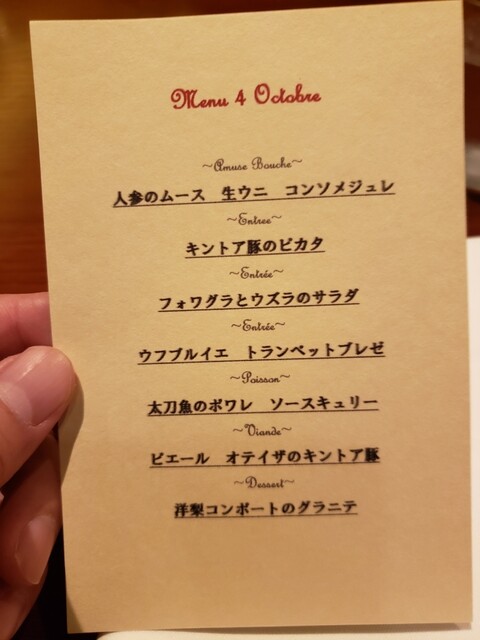 Menu 4 Octobre
~Amuse Bouche~
人参のムース　生ウニ　コンソメジュレ
~Entree~
キントア豚のピカタ
~Entrée~
フォワグラとウズラのサラダ
~Entrée~
ウフブルイエ　トランペットブレゼ
~Poisson~
太刀魚のポワレ　ソースキュリー
~Viande~
ピエール　オテイザのキントア豚
~Dessert~
洋梨コンポートのグラニテ